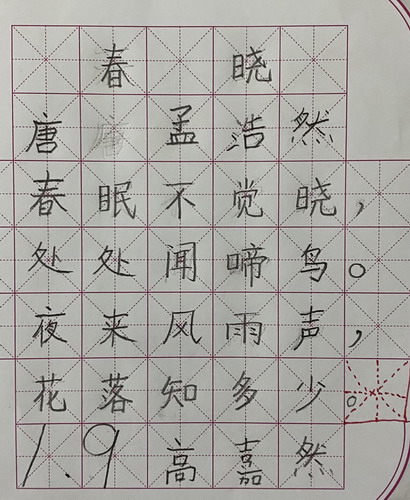 春晓
唐 孟浩然
春眠不觉晓，
处处闻啼鸟。
夜来风雨声，
花落知多少。
1.9 高嘉然